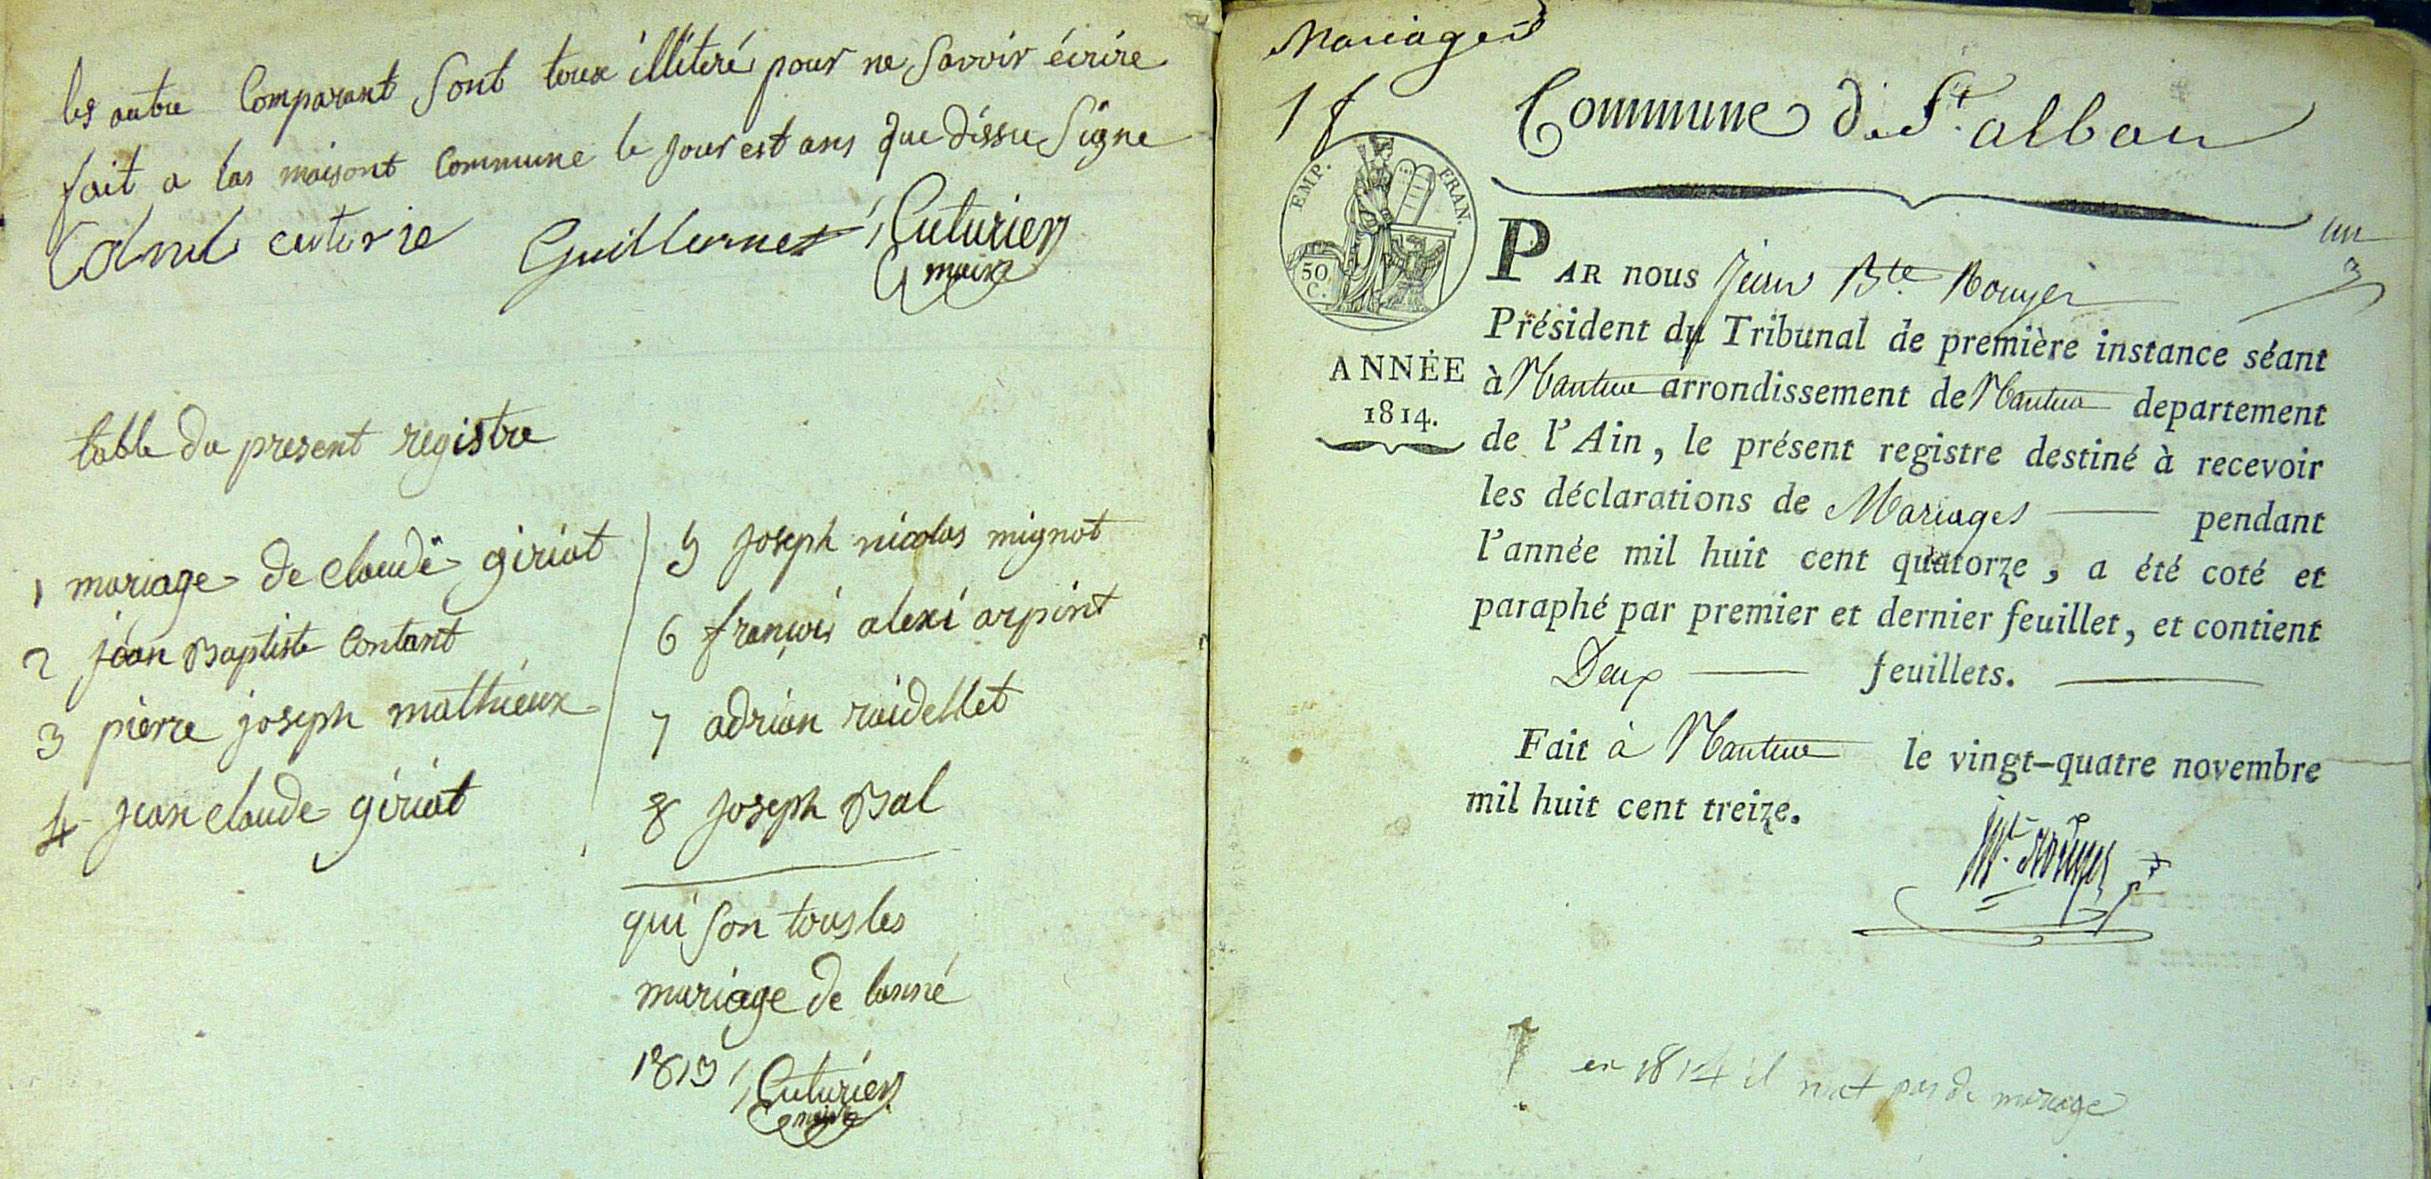 les autre Comparant Sont toux illiteré pour ne Savoir écrire
fait a las maisont Commune le jour est ans que dissu Signe
cuturie Guillermet Cuturier
maire
table du present registre
1 mariage de claude giriat
2 jean Baptiste Contant
3 pierre joseph mathieux
4 jean claude giriat
5 joseph nicolas mignot
6 françois alexi arpint
7 adrian raidellet
8 joseph Bal
qui Son tous les
mariage de lanné
1813 Cuturier
maire
Mariages
1 f
Commune de St. alban
EMP. FRAN.
50 C.
ANNÉE
1814.
un
PAR nous Jean Bte. Rouyer
Président du Tribunal de première instance séant
à Nantua arrondissement de Nantua departement
de l'Ain, le présent registre destiné à recevoir
les déclarations de Mariages pendant
l'année mil huit cent quatorze, a été coté et
paraphé par premier et dernier feuillet, et contient
Deux feuillets.
Fait à Nantua le vingt-quatre novembre
mil huit cent treize.
en 1814 il niat pas de mariage